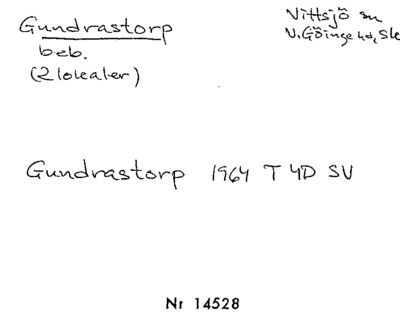 Gundrastorp
beb.
(2 lokaler)
Vittsjö sn
V. Göinge hd, Sk
Gundrastorp 1964 T 4D SV
Nr 14528